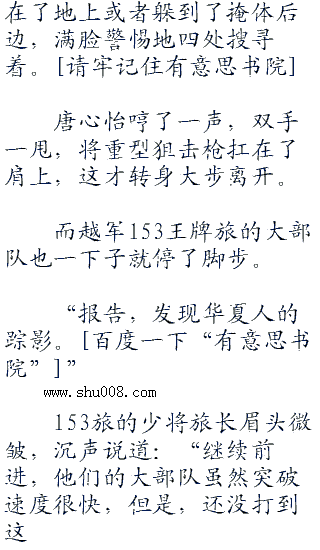 在了地上或者躲到了掩体后
边，满脸警惕地四处搜寻
着。[请牢记住有意思书院]
唐心怡哼了一声，双手
一甩，将重型狙击枪扛在了
肩上，这才转身大步离开。
而越军153王牌旅的大部
队也一下子就停了脚步。
“报告，发现华夏人的
踪影。[百度一下“有意思书
院”]”
www.shu008.com
153旅的少将旅长眉头微
皱，沉声说道：“继续前
进，他们的大部队虽然突破
速度很快，但是，还没打到
这